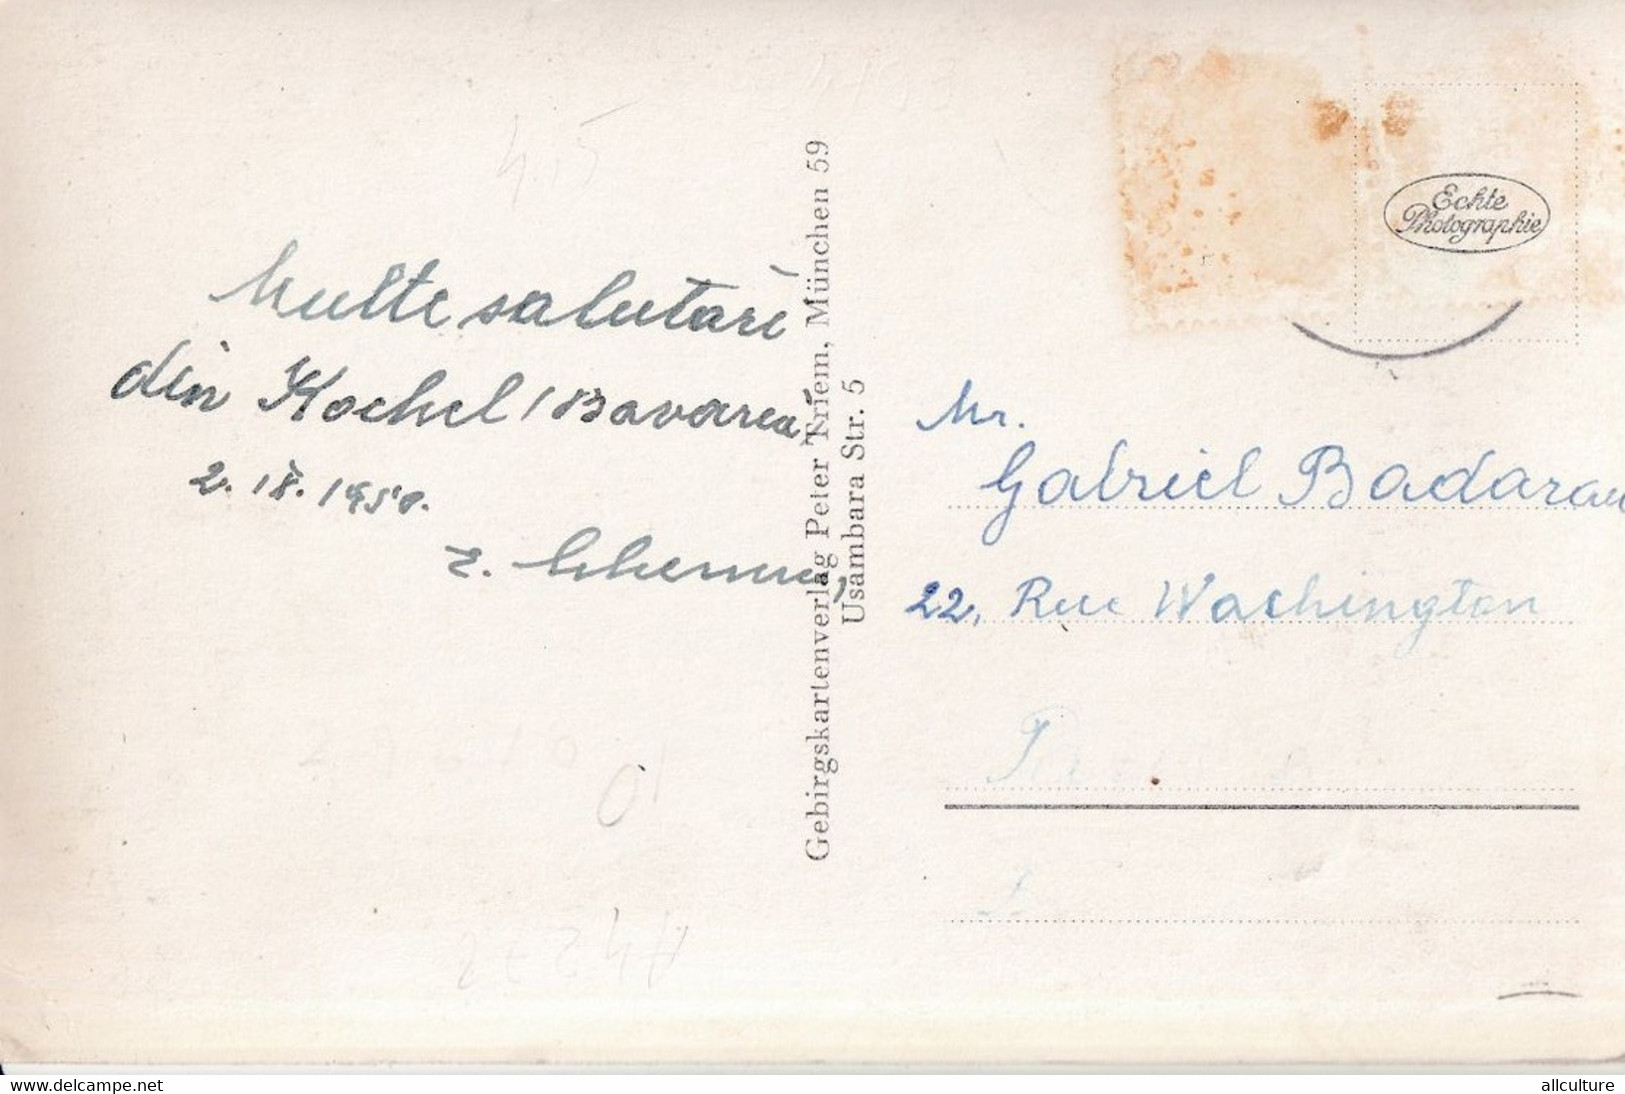 Multe salutari
din Kochel / Bavarea
2. IX. 1950.
Gebirgskartenverlag Peter Triem, München 59
Usambara Str. 5
Echte
Photographie
Mr.
Gabriel Badarau
22, Rue Wachington
4.5
10
www.delcampe.net
allculture